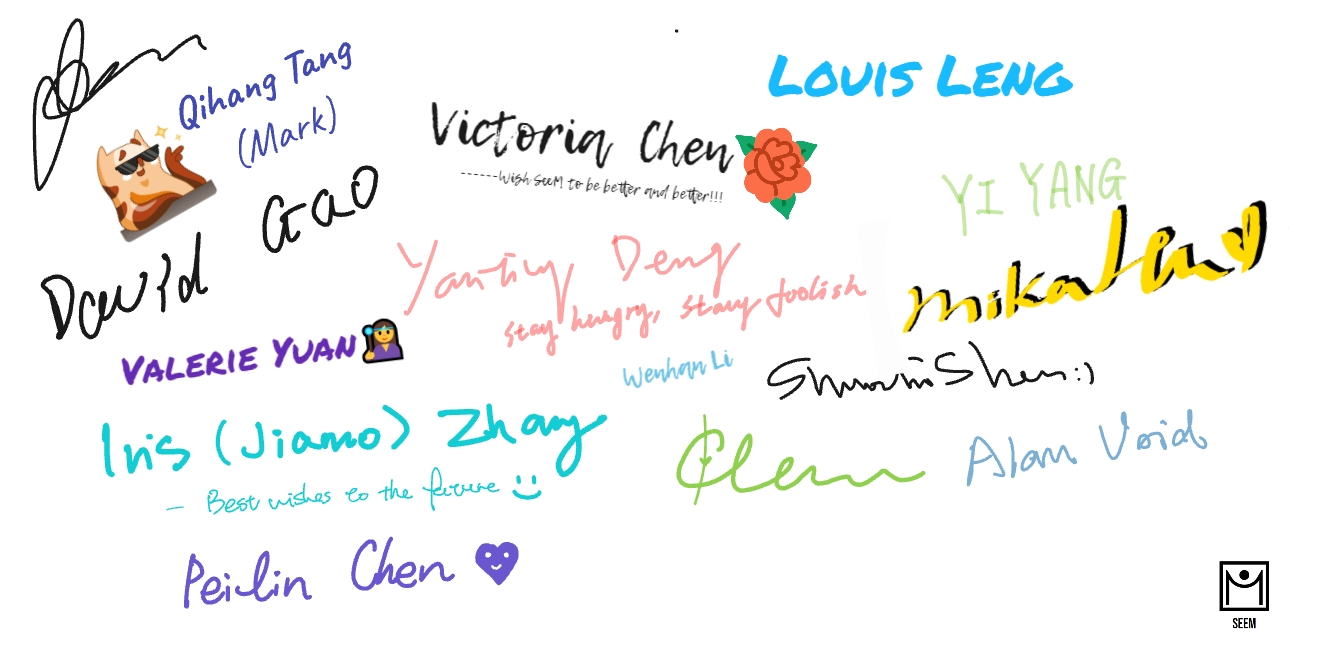 Qihang Tang
(Mark)
LOUIS LENG
Victoria Chen
------Wish SEEM to be better and better!!!
YI YANG
David Gao
Yanting Deng
Stay hungry, Stay foolish
mika
VALERIE YUAN
Wenhan Li
Shen:)
Iris (Jiamo) Zhang
— Best wishes to the future
Alan Void
Peilin Chen
SEEM